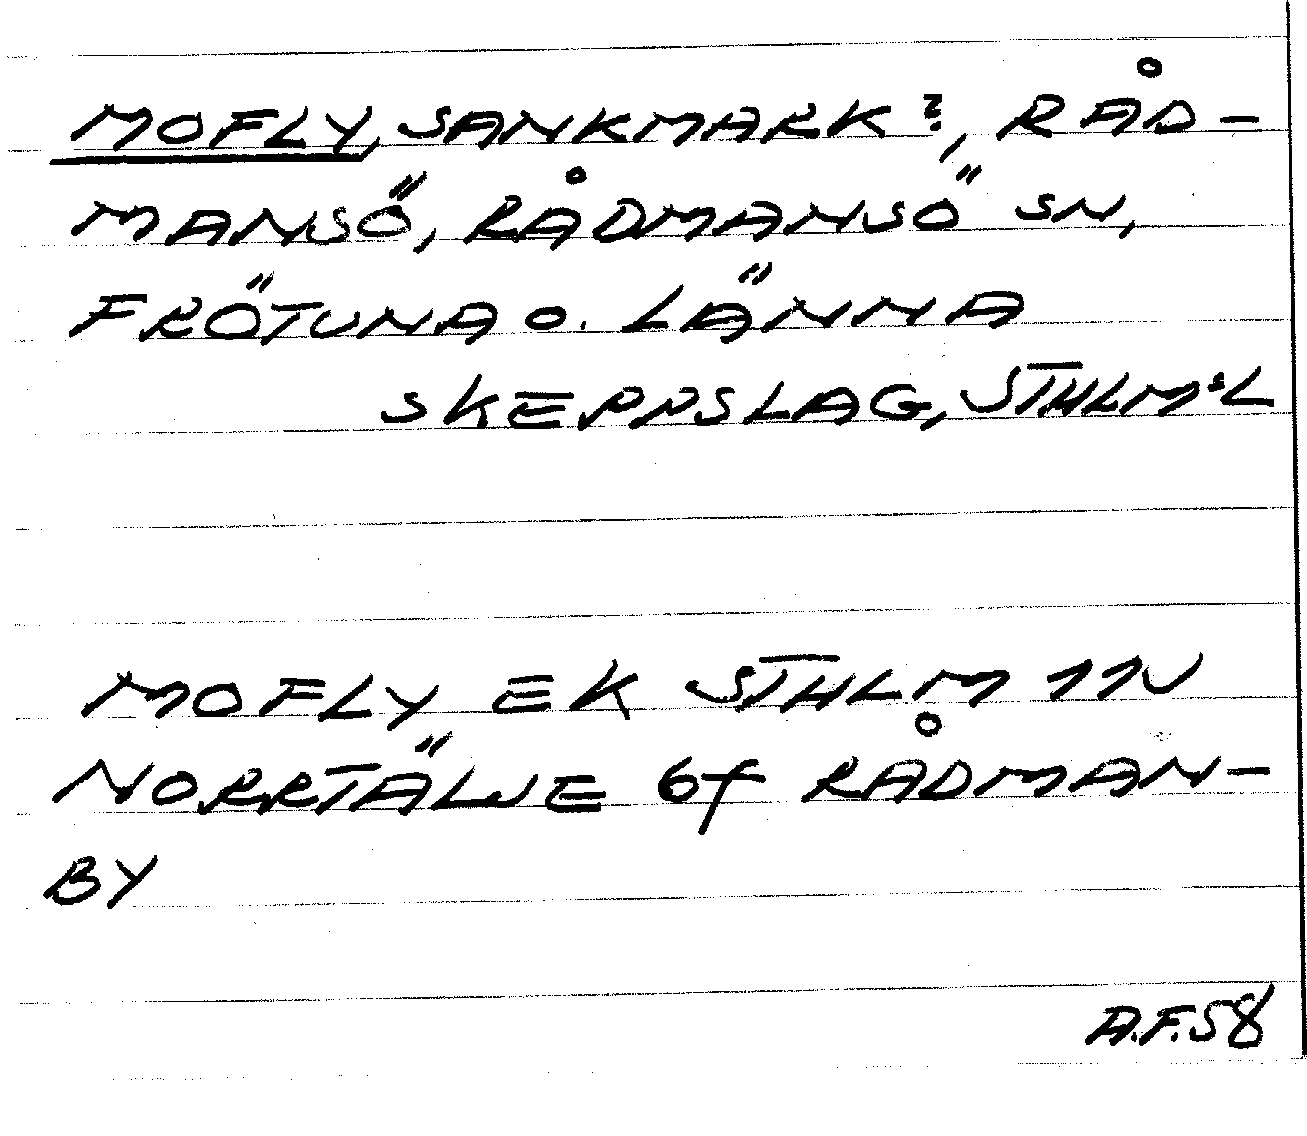 MOFLY, SANKMARK?, RÅD-
MANSÖ, RÅDMANSÖ SN,
FRÖTUNA O. LÄNNA
SKEPPSLAG, STHLM:S L
MOFLY EK STHLM 11NV
NORRTÄLJE 6f RÅDMAN-
BY
A.F.58